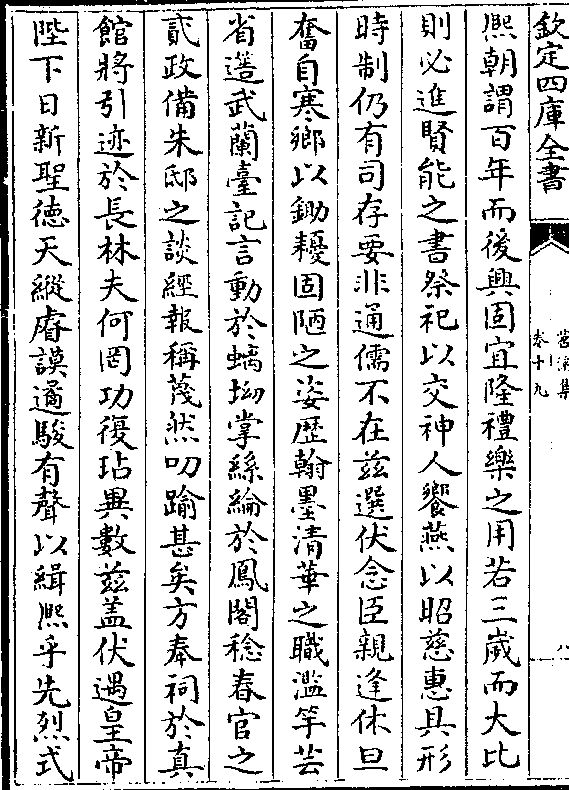 欽定四庫全書
卷十九
熈朝謂百年而後興固宜隆禮樂之用若三歲而大比
則必進賢能之書祭祀以交神人饗燕以昭慈惠具形
時制仍有司存要非通儒不在兹選伏念臣親逢休旦
奮自寒鄉以鋤耰固陋之姿歴翰墨清華之職濫竽芸
省簉武蘭臺記言動於螭坳掌絲綸於鳳閣稔春官之
貳政備朱邸之談經報稱蔑然叨踰甚矣方奉祠於真
館將引迹於長林夫何罔功復玷異數兹盖伏遇皇帝
陛下日新聖徳天縱睿謨遹駿有聲以緝熈乎先烈式